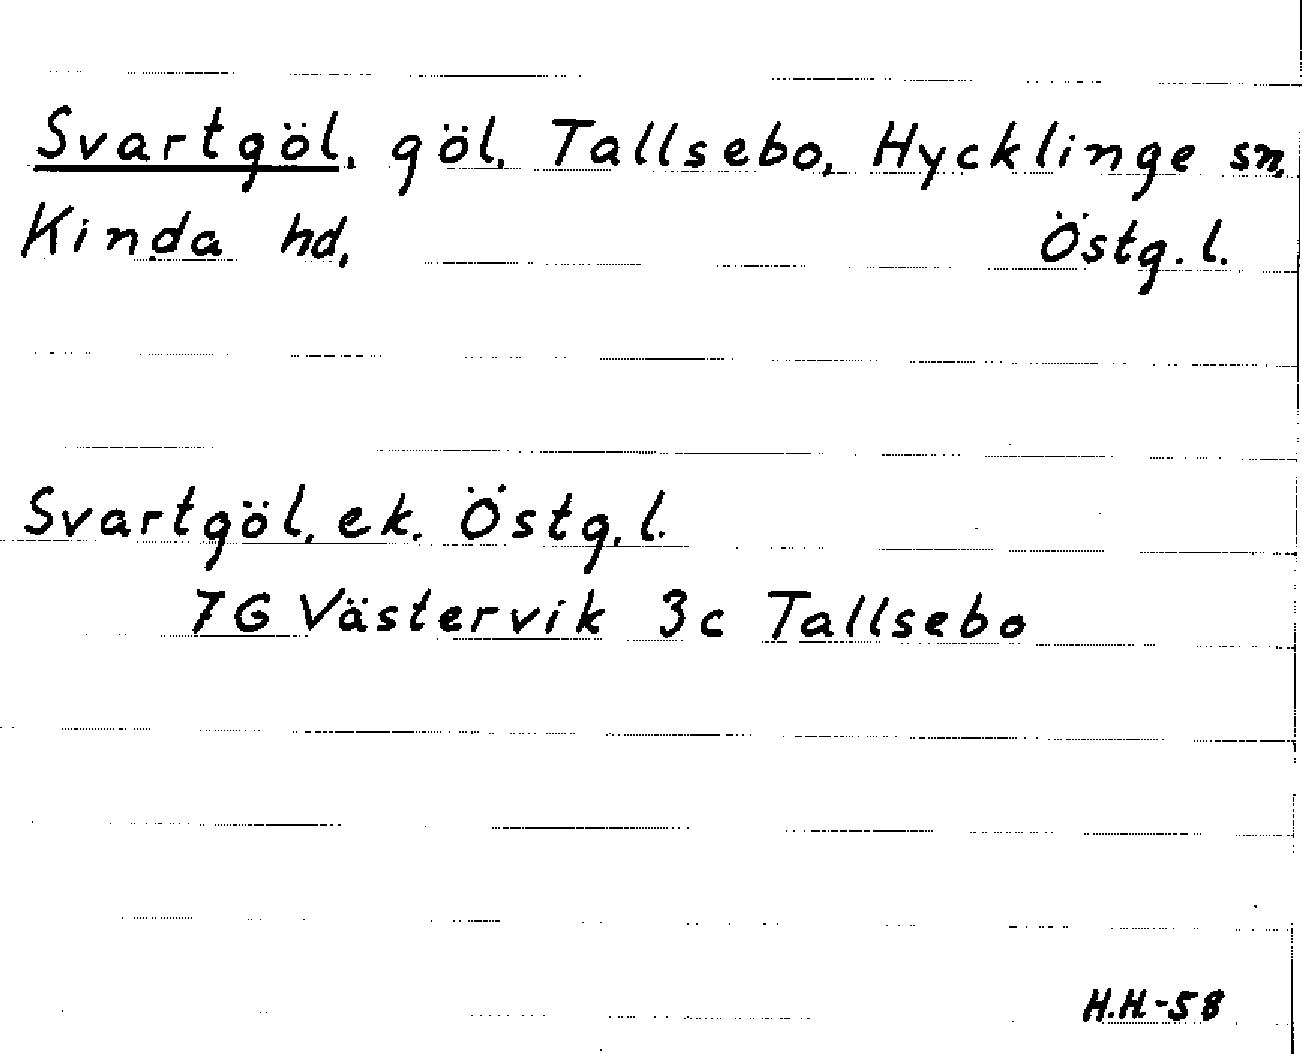 Svartgöl, göl, Tallsebo, Hycklinge sn,
Kinda hd, Östg. l.
Svartgöl, ek. Östg. l.
7G Västervik 3c Tallsebo
H.H.-58